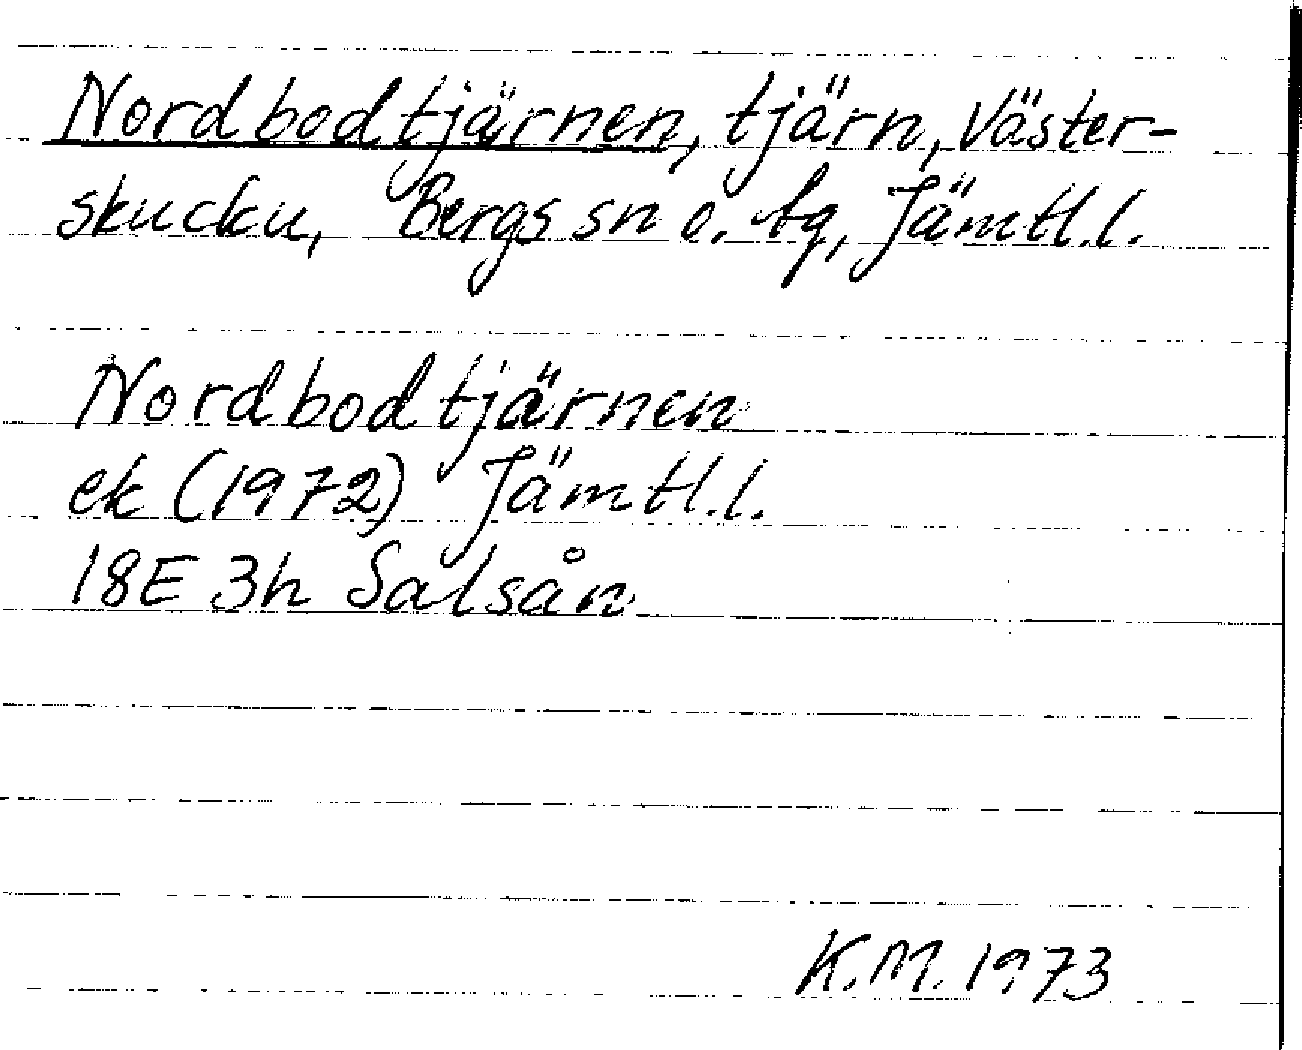 Nordbodtjärnen, tjärn, Väster-
skucku, Bergs sn o. tg, Jämtl.l.
Nordbodtjärnen
ek (1972) Jämtl.l.
18E 3h Salsån
K.M. 1973